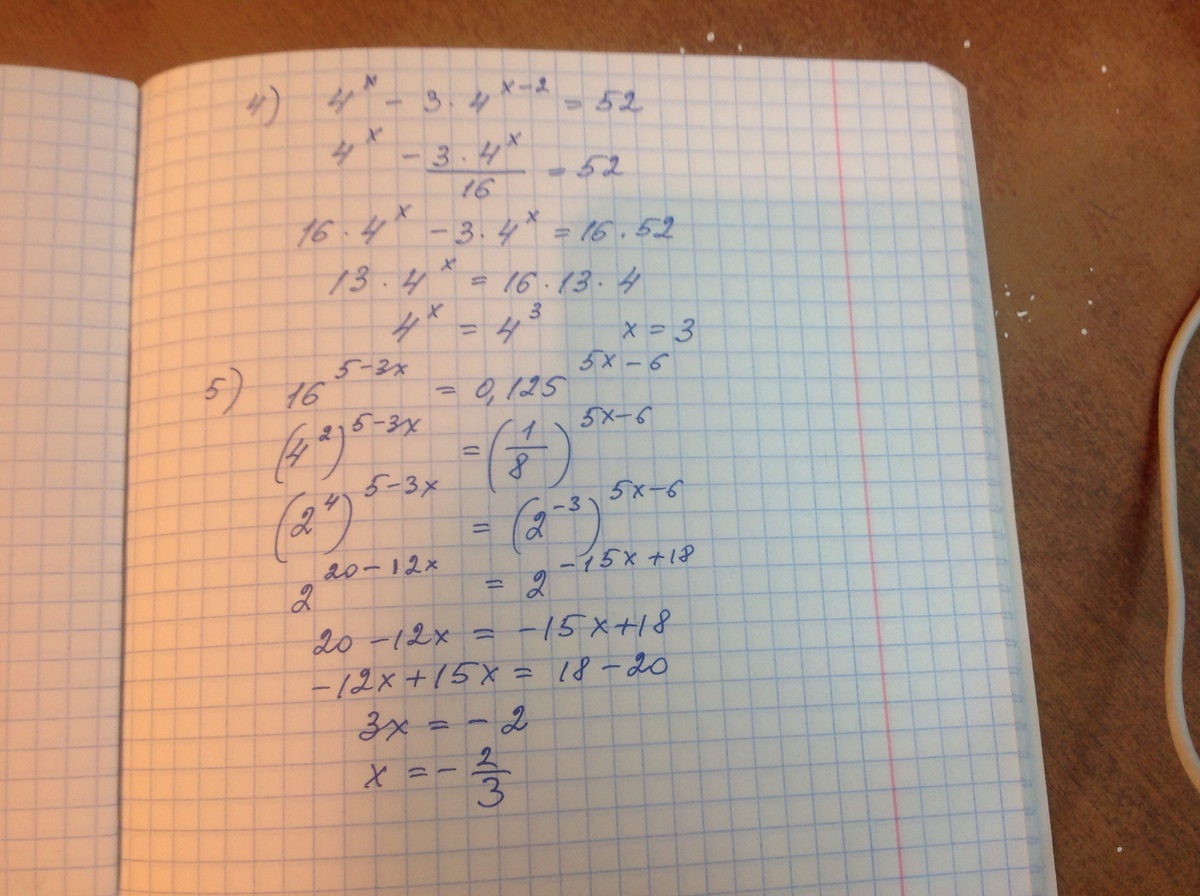 4) 4^x − 3 · 4^(x−2) = 52
4^x − (3 · 4^x)/16 = 52
16 · 4^x − 3 · 4^x = 16 · 52
13 · 4^x = 16 · 13 · 4
4^x = 4^3 x = 3
5) 16^(5−3x) = 0,125^(5x−6)
(4^2)^(5−3x) = (1/8)^(5x−6)
(2^4)^(5−3x) = (2^(−3))^(5x−6)
2^(20−12x) = 2^(−15x+18)
20 − 12x = −15x + 18
−12x + 15x = 18 − 20
3x = − 2
x = − 2/3